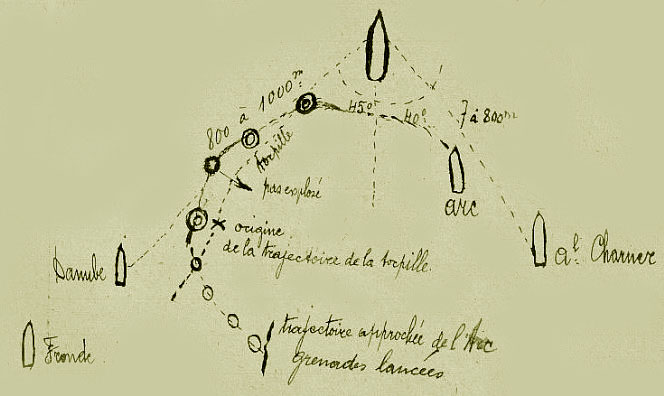 800 à 1000m
45°
40°
7 à 800m
torpille
pas explosé
Arc
origine
de la trajectoire de la torpille.
Danube
Al Charner
trajectoire approchée de l'Arc
grenades lancées
Fronde.